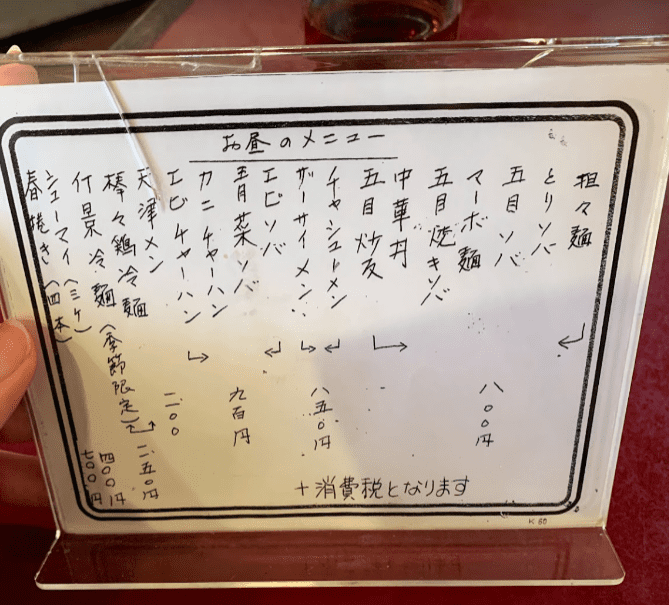 お昼のメニュー
担々麺
とりソバ
五目ソバ
マーボ麺
五目焼きソバ
中華丼
五目炒反
八〇〇円
チャシューメン
ザーサイメン
八五〇円
エビソバ
青菜ソバ
九百円
カニチャーハン
エビチャーハン
一一〇〇
天津メン
棒々鶏冷麺
什景冷麺(季節限定)
一一五〇円
シューマイ(三ケ)
四〇〇円
春捲き(四本)
七〇〇円
+消費税となります
K 60